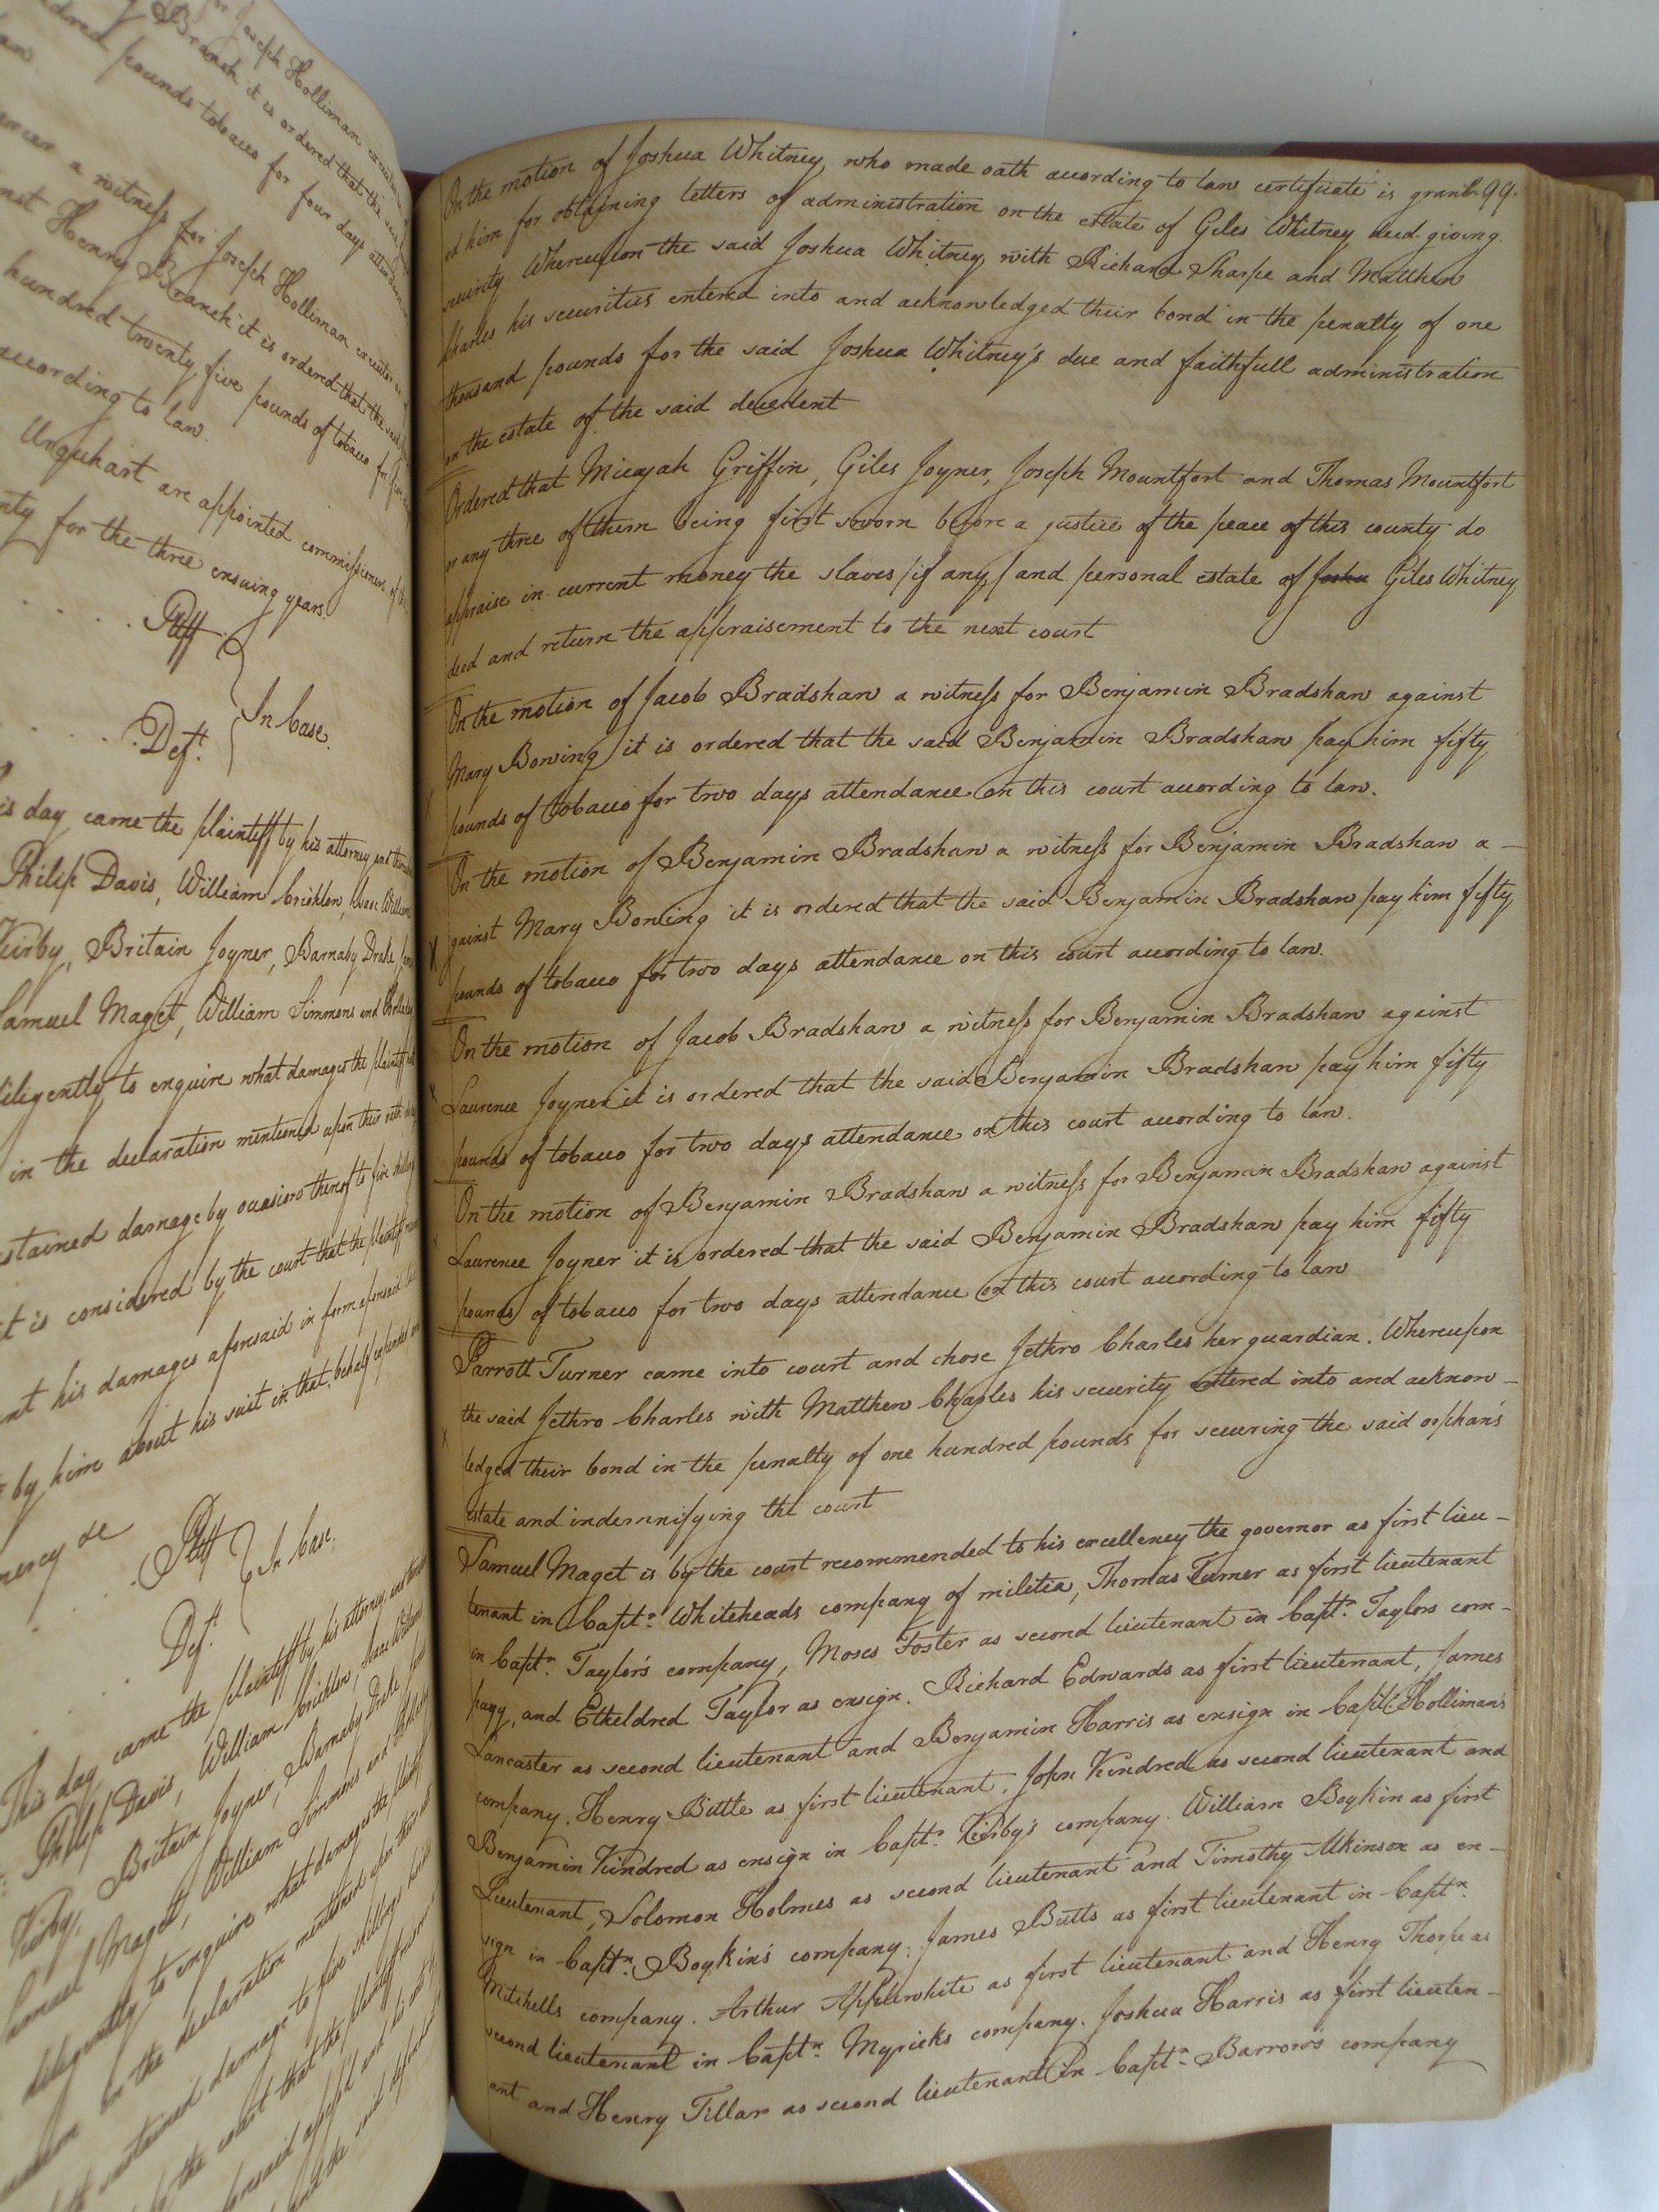 Joseph Holliman
Branch it is ordered that the said
pounds tobacco for four days attendance
a witness for Joseph Holliman executor
Henry Branch it is ordered that the said
hundred twenty five pounds of tobacco for
according to law.
Urquhart are appointed commissioners
for the three ensuing years.
Pltff
In Case.
Deft.
day came the plaintiff by his attorney and
Philip Davis, William Crichlow, Isaac William
Kirby, Britain Joyner, Barnaby Drake,
Samuel Maget, William Simmons and
diligently to enquire what damages the plaintiff
in the declaration mentioned upon their oath
sustained damage by occasion thereof to five shillings
it is considered by the court that the plaintiff
his damages aforesaid in form aforesaid
by him about his suit in that behalf expended
mercy &c
Pltff
In Case.
Deft.
This day came the plaintiff by his attorney and
Philip Davis, William Crichlow, Isaac William
Kirby, Britain Joyner, Barnaby Drake
Samuel Maget, William Simmons and
diligently to enquire what damages the plaintiff
in the declaration mentioned upon their
sustained damage to five shillings
the court that the plaintiff
99.
On the motion of Joshua Whitney, who made oath according to law certificate is grant-
ed him for obtaining letters of administration on the estate of Giles Whitney decd. giving
security. Whereupon the said Joshua Whitney, with Richard Sharpe and Matthew
Charles his securities entered into and acknowledged their bond in the penalty of one
thousand pounds for the said Joshua Whitney's due and faithfull administration
on the estate of the said decedent
Ordered that Micajah Griffin, Giles Joyner, Joseph Mountfort and Thomas Mountfort
or any three of them being first sworn before a justice of the peace of this county do
appraise in current money the slaves /if any/ and personal estate of Joshu Giles Whitney,
decd and return the appraisement to the next court
On the motion of Jacob Bradshaw a witness for Benjamin Bradshaw against
Mary Bowing it is ordered that the said Benjamin Bradshaw pay him fifty
pounds of tobacco for two days attendance on this court according to law.
On the motion of Benjamin Bradshaw a witness for Benjamin Bradshaw a-
X gainst Mary Bowing it is ordered that the said Benjamin Bradshaw pay him fifty
pounds of tobacco for two days attendance on this court according to law.
On the motion of Jacob Bradshaw a witness for Benjamin Bradshaw against
X Laurence Joyner it is ordered that the said Benjamin Bradshaw pay him fifty
pounds of tobacco for two days attendance on this court according to law.
On the motion of Benjamin Bradshaw a witness for Benjamin Bradshaw against
Laurence Joyner it is ordered that the said Benjamin Bradshaw pay him fifty
pounds of tobacco for two days attendance on this court according to law
Parrott Turner came into court and chose Jethro Charles her guardian. Whereupon
the said Jethro Charles with Matthew Charles his security entered into and acknow-
X ledged their bond in the penalty of one hundred pounds for securing the said orphan's
estate and indemnifying the court
Samuel Maget is by the court recommended to his excellency the governor as first lieu-
tenant in Captn. Whiteheads company of militia, Thomas Turner as first lieutenant
in Captn. Taylor's company, Moses Foster as second lieutenant in Captn. Taylors com-
pany, and Etheldred Taylor as ensign. Richard Edwards as first lieutenant, James
Lancaster as second lieutenant and Benjamin Harris as ensign in Captn. Holliman's
company. Henry Bittle as first lieutenant, John Kindred as second lieutenant and
Benjamin Kindred as ensign in Captn. Kirby's company. William Boykin as first
Lieutenant, Solomon Holmes as second lieutenant and Timothy Atkinson as en-
sign in Captn. Boykin's company. James Butts as first lieutenant in Captn.
Mitchells company. Arthur Applewhite as first lieutenant and Henry Thorpe as
second lieutenant in Captn. Myricks company. Joshua Harris as first lieuten-
ant and Henry Tillar as second lieutenant in Captn. Barrows company